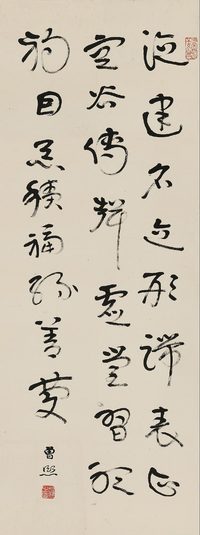 德建名立形端表正
空谷傳聲虛堂習聽
禍因惡積福緣善慶
曾熙